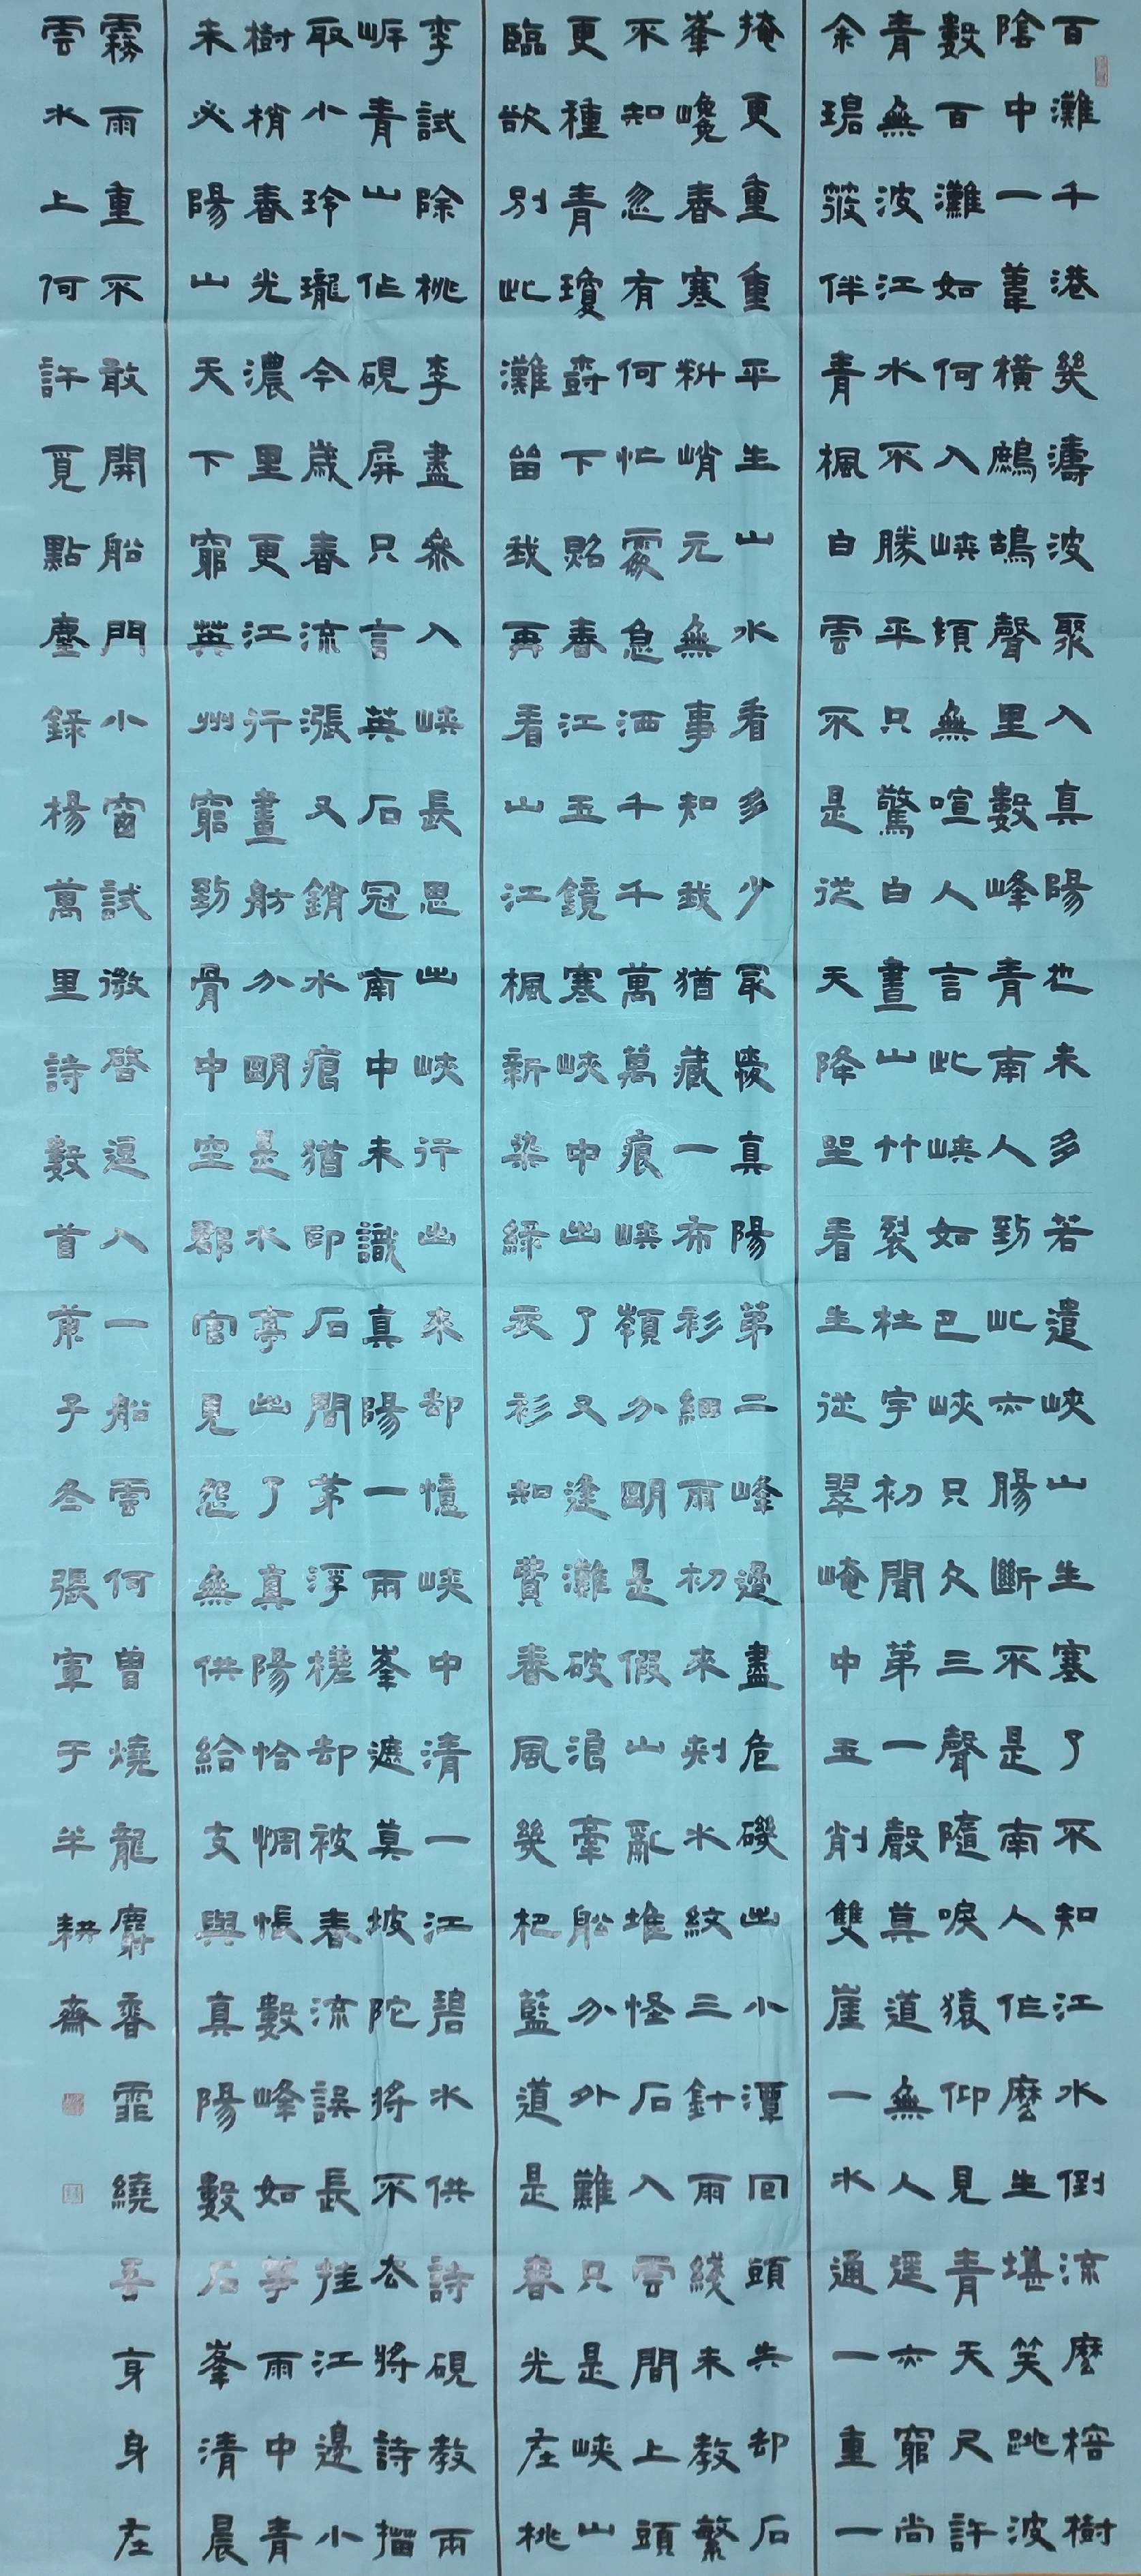 百灘千港幾濤波聚入真陽也未多若遣峽山生塞了不知江水倒流麼榕樹
陰中一葦橫鷓鴣聲里數峰青南人到此亦腸斷不是南人作麼生堪笑跳波
數百灘如何入峽頓無喧人言此峽如巴峽只欠三聲隨唳猿仰見青天尺許
青無波江水不勝平只驚白晝山竹裂杜宇初聞第一聲莫道無人逕亦窮尚
余碧筱伴青楓白雲不是從天降坐看生從翠崦中玉削雙崖一水通一重一
掩更重重平生山水看多少最愛真陽第二峰邊盡危磯出小潭回頭失卻石
峯巉春寒料峭元無事知我猶藏一布衫細雨初來刺水紋三針兩綫未教繁
不知忽有何忙處急洒千千萬萬痕峽嶺分明是假山亂堆怪石入雲間上頭
更種青瓊爵下照春江玉鏡寒峽中出了又逢灘破浪牽船分外難只是峽山
臨欲別此灘留我再看山江楓新染綠衣衫知費春風幾杷藍道是春光在桃
李試除桃李盡參入峽長思出峽行出來卻憶峽中清一江碧水供詩硯教兩
岸青山作硯屏只言英石冠南中未識真陽一兩峯遮莫坡陀將不去將詩描
取小玲瓏今歲春流漲又銷水痕猶印石間茅浮槎卻被春流誤長挂江邊小
樹梢春光濃里更江行畫舫分明是水亭出了真陽恰惆悵數峰如夢雨中青
未必陽山天下窮英州窮到骨中空郡官見怨無供給支與真陽數石峯清晨
霧雨重不敢開船門小窗試微啓逗入一船雲何曾燒龍麝香霏繞吾身身在
雲水上何許覓點塵錄楊萬里詩數首庚子冬張軍于半耕齋